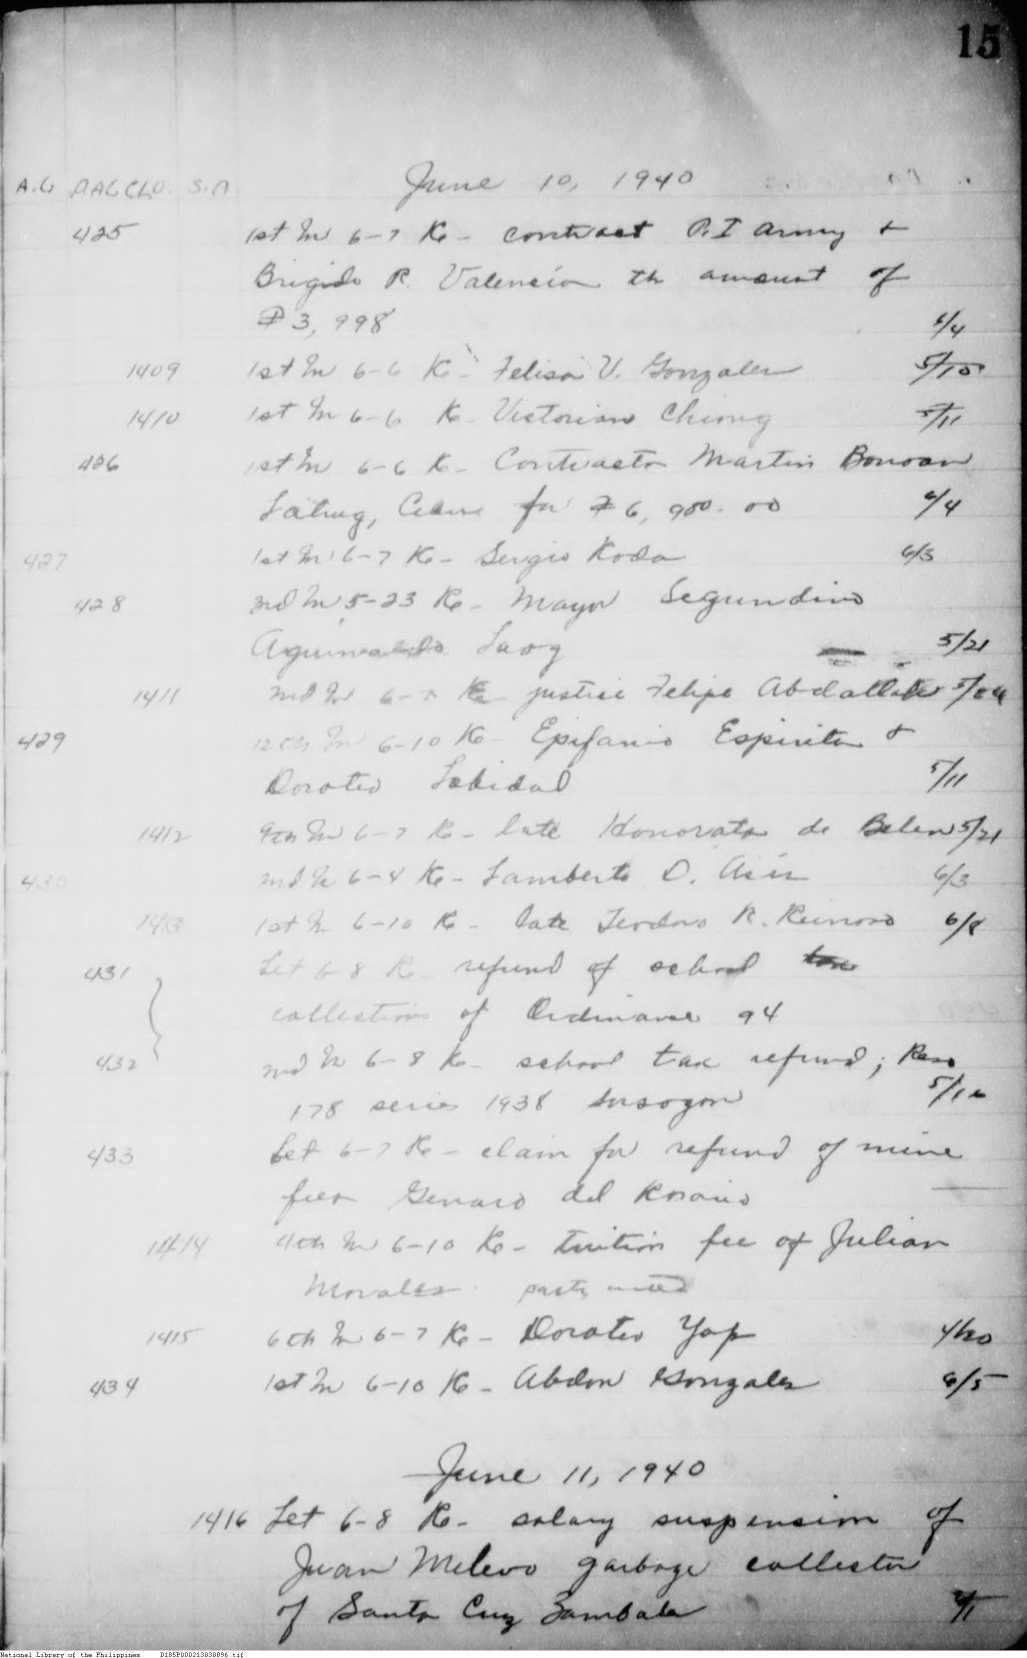 15
A.G DAGCLD. S.D
June 10, 1940
425 1st In 6-7 Re - contract P.I Army &
Brigido R. Valencia th amount of
₱3,998 6/4
1409 1st In 6-6 Re - Felisa V. Gonzales 5/10
1410 1st In 6-6 Re - Victoriano Chiong 5/11
426 1st In 6-6 Re - Contractor Martin Bonoan
Lahug, for ₱6,900.00 6/4
427 1st In 6-7 Re - Sergio Koda 6/3
428 2nd In 5-23 Re - Mayor Segundino
Aguinaldo Laog 5/21
1411 2nd In 6- Re - justice Felipe
429 12th In 6-10 Re - Epifanio Espiritu &
Doroteo Labidal 5/11
1412 9th In 6-7 Re - late Honorata de Belen 5/21
430 2nd In 6-4 Re - Lamberto D. Asis 6/3
1413 1st In 6-10 Re - late Teodoro R. Reinoso 6/8
431 Let 6-8 Re - refund of school
collections of Ordinance 94
432 2nd In 6-8 Re - school tax refund; Reso
178 series 1938 Sorsogon 5/16
433 Let 6-7 Re - claim for refund of mine
fees Genaro del Rosario
1414 4th In 6-10 Re - tuition fee of Julian
Morales
1415 6th In 6-7 Re - Doroteo Yap 4/20
434 1st In 6-10 Re - Abdon Gonzales 6/5
June 11, 1940
1416 Let 6-8 Re - salary suspension of
Juan Melevo garbage collector
of Santa Cruz Zambales
National Library of the Philippines D185P000213038096.tif